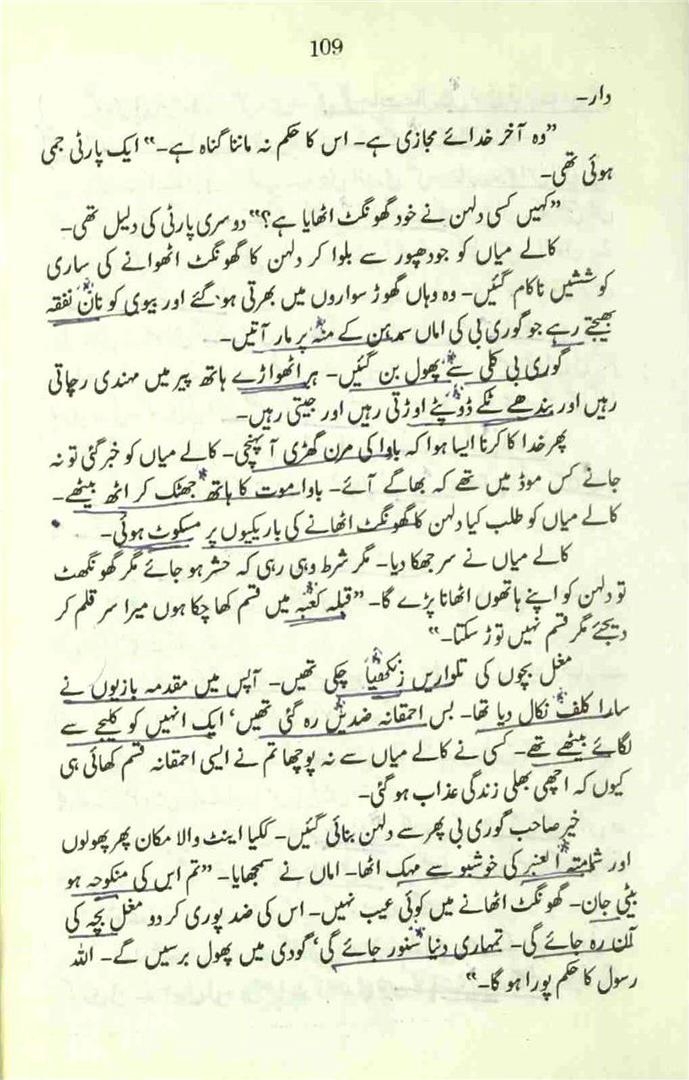 109
دار۔
”وہ آخر خدائے مجازی ہے۔ اس کا حکم نہ ماننا گناہ ہے۔“ ایک پارٹی جمی
ہوئی تھی۔
”کہیں کسی دلہن نے خود گھونگٹ اٹھایا ہے؟“ دوسری پارٹی کی دلیل تھی۔
کالے میاں کو جودھپور سے بلوا کر دلہن کا گھونگٹ اٹھوانے کی ساری
کوششیں ناکام گئیں۔ وہ وہاں گھوڑ سواروں میں بھرتی ہو گئے اور بیوی کو نان نفقہ
بھیجتے رہے جو گوری بی کی اماں سمدہن کے منہ پر مار آتیں۔
گوری بی کلی سے پھول بن گئیں۔ ہر اٹھواڑے ہاتھ پیر میں مہندی رچاتی
رہیں اور بندھے ٹکے ڈوپٹے اوڑتی رہیں اور جیتی رہیں۔
پھر خدا کا کرنا ایسا ہوا کہ باوا کی مرن گھڑی آ پہنچی۔ کالے میاں کو خبر گئی تو نہ
جانے کس موڈ میں تھے کہ بھاگے آئے۔ باوا موت کا ہاتھ جھٹک کر اٹھ بیٹھے۔
کالے میاں کو طلب کیا دلہن کا گھونگٹ اٹھانے کی باریکیوں پر مسکوٹ ہوئی۔
کالے میاں نے سر جھکا دیا۔ مگر شرط وہی رہی کہ حشر ہو جائے مگر گھونگھٹ
تو دلہن کو اپنے ہاتھوں اٹھانا پڑے گا۔ ”قبلہ کعبہ میں قسم کھا چکا ہوں میرا سر قلم کر
دیجئے مگر قسم نہیں توڑ سکتا۔“
مغل بچوں کی تلواریں زنکھیا چکی تھیں۔ آپس میں مقدمہ بازیوں نے
سارا کلف نکال دیا تھا۔ بس احمقانہ ضدیں رہ گئی تھیں‘ ایک انہیں کو کلیجے سے
لگائے بیٹھے تھے۔ کسی نے کالے میاں سے نہ پوچھا تم نے ایسی احمقانہ قسم کھائی ہی
کیوں کہ اچھی بھلی زندگی عذاب ہو گئی۔
خیر صاحب گوری بی پھر سے دلہن بنائی گئیں۔ ککیا اینٹ والا مکان پھر پھولوں
اور شمامتہ العنبر کی خوشبو سے مہک اٹھا۔ اماں نے سمجھایا۔ ”تم اس کی منکوحہ ہو
بیٹی جان۔ گھونگٹ اٹھانے میں کوئی عیب نہیں۔ اس کی ضد پوری کر دو مغل بچہ کی
آن رہ جائے گی۔ تمہاری دنیا سنور جائے گی‘ گودی میں پھول برسیں گے۔ اللہ
رسول کا حکم پورا ہو گا۔“